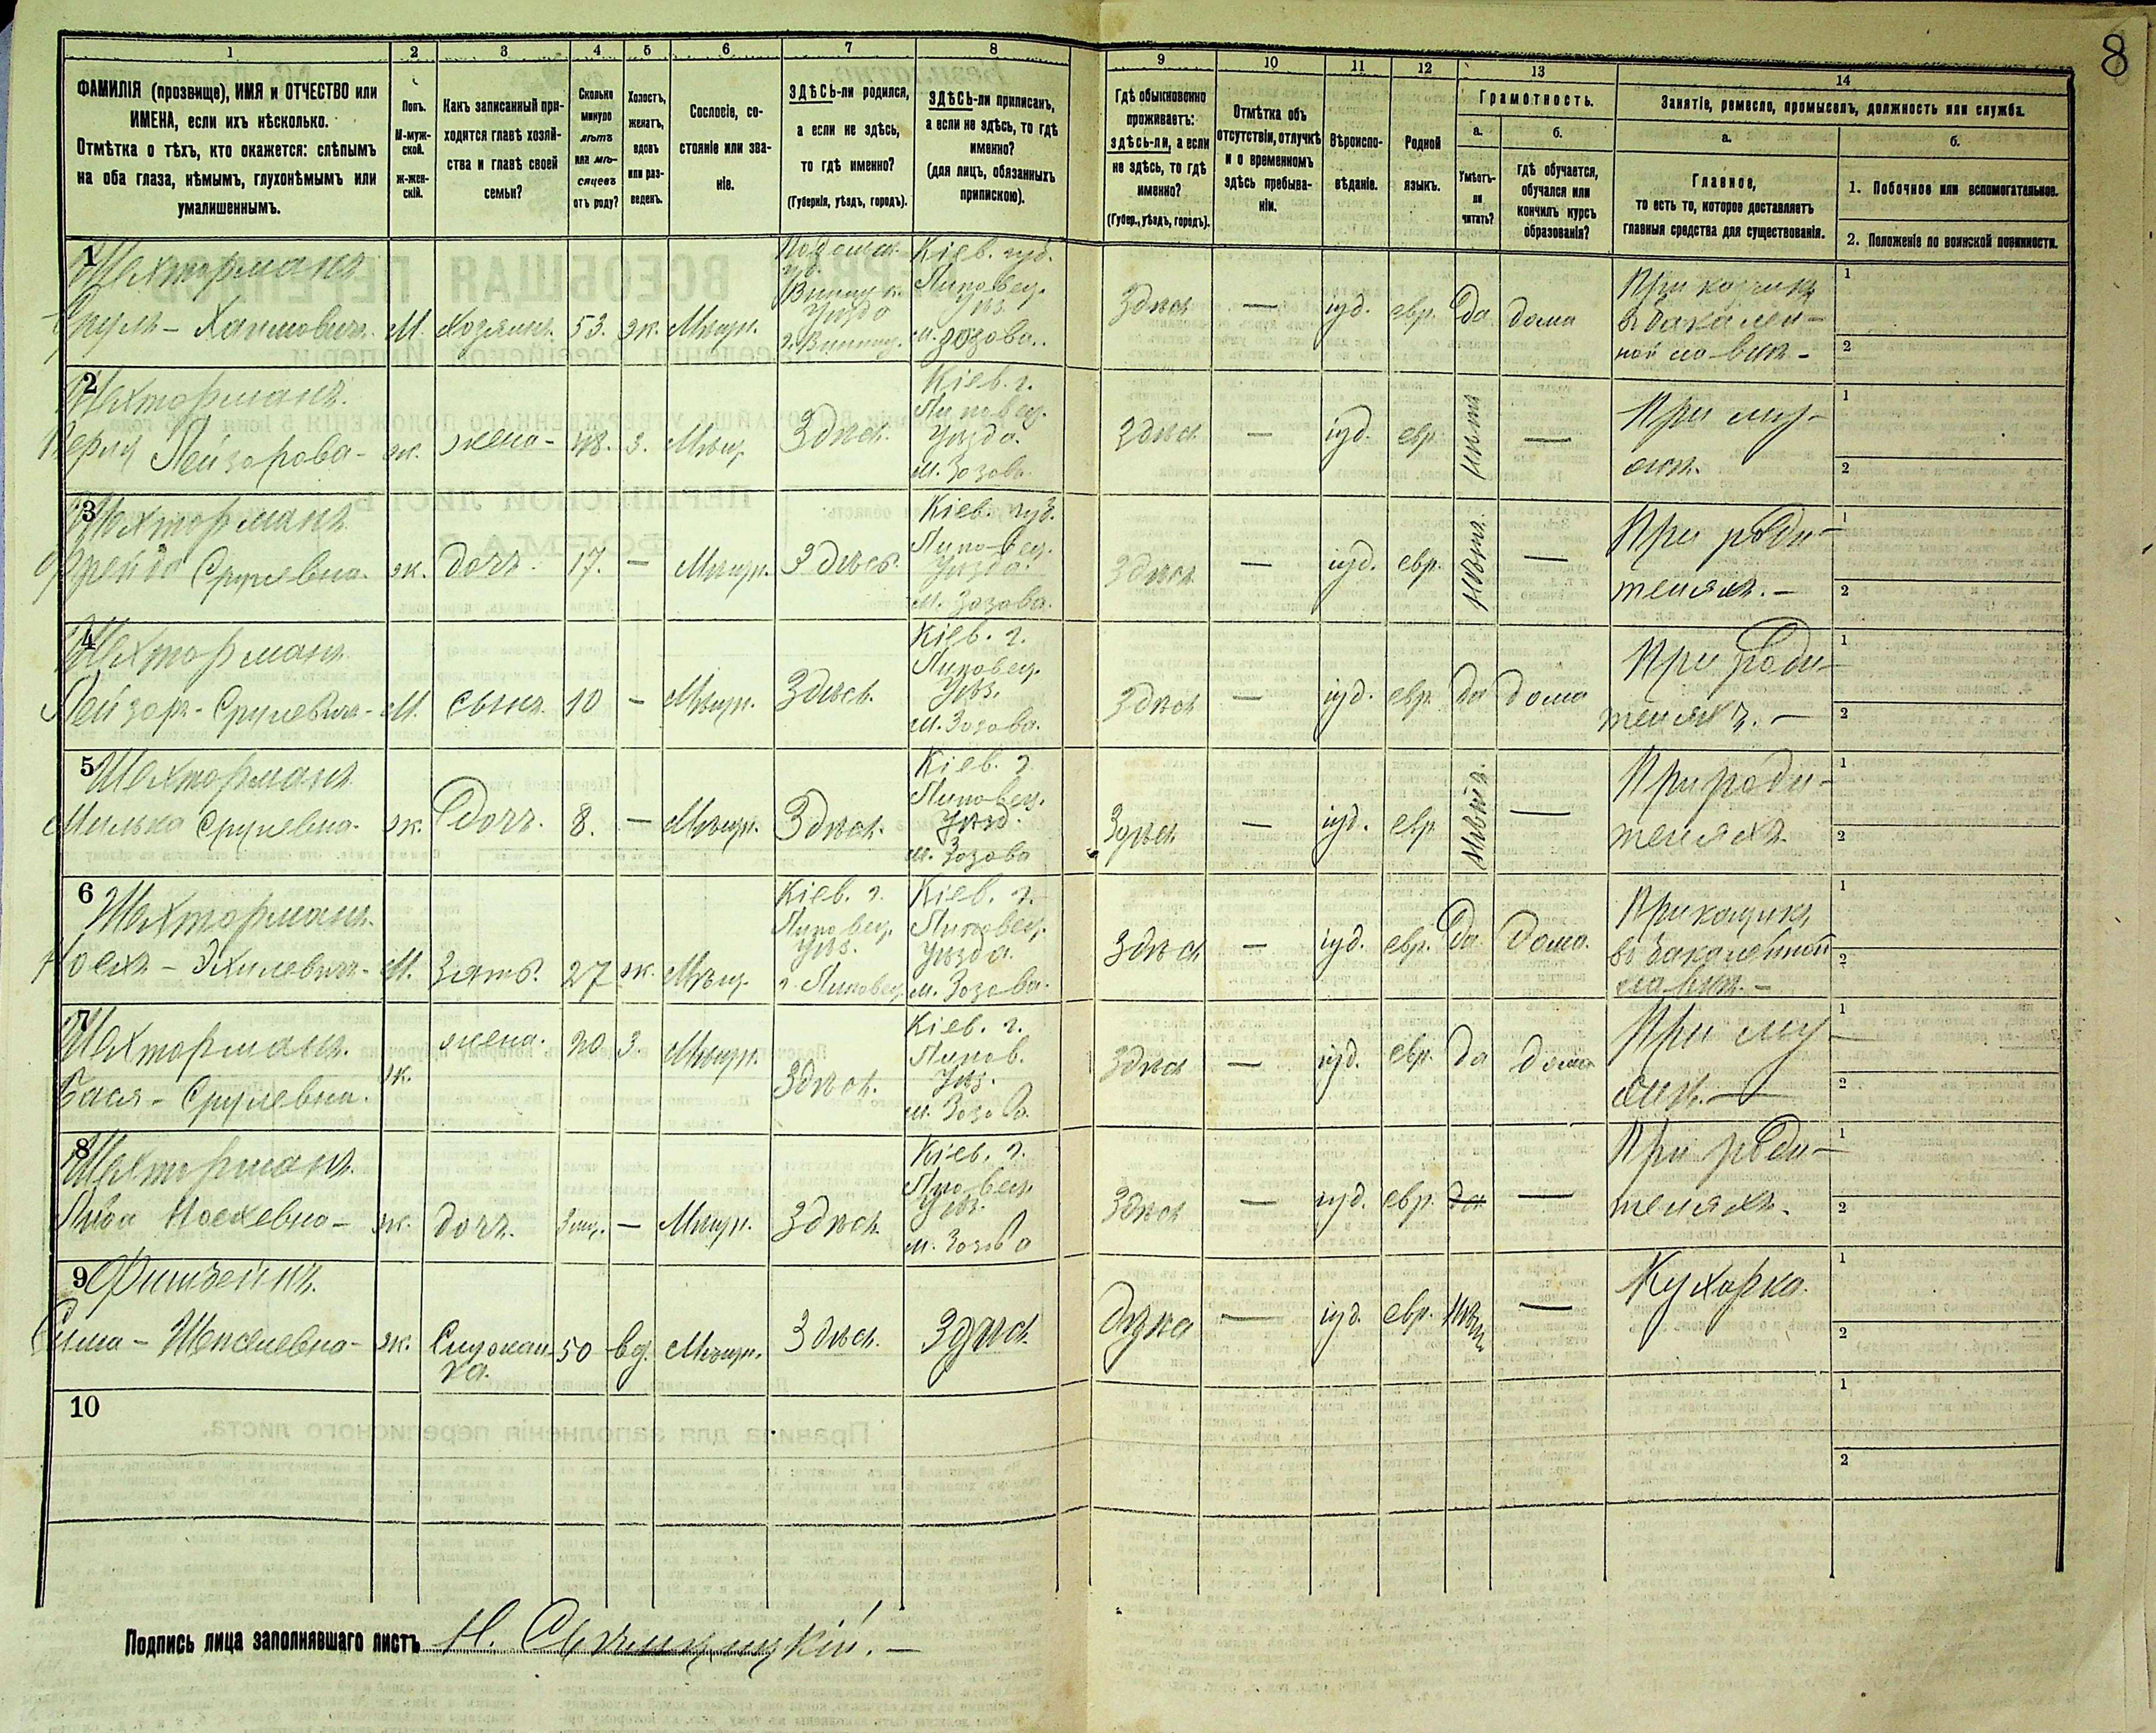 8
1 2 3 4 5 6 7 8 9 10 11 12 13 14
ФАМИЛІЯ (прозвище), ИМЯ и ОТЧЕСТВО или
ИМЕНА, если ихъ нѣсколько.
Отмѣтка о тѣхъ, кто окажется: слѣпымъ
на оба глаза, нѣмымъ, глухонѣмымъ или
умалишеннымъ.
Полъ.
М-муж-
ской.
Ж-жен-
скій.
Какъ записанный при-
ходится главѣ хозяй-
ства и главѣ своей
семьи?
Сколько
минуло
лѣтъ
или мѣ-
сяцевъ
отъ роду?
Холостъ,
женатъ,
вдовъ
или раз-
веденъ.
Сословіе, со-
стояніе или зва-
ніе.
ЗДѢСЬ-ли родился,
а если не здѣсь,
то гдѣ именно?
(Губернія, уѣздъ, городъ).
ЗДѢСЬ-ли приписанъ,
а если не здѣсь, то гдѣ
именно?
(для лицъ, обязанныхъ
припискою).
Гдѣ обыкновенно
проживаетъ:
здѣсь-ли, а если
не здѣсь, то гдѣ
именно?
(Губер., уѣздъ, городъ).
Отмѣтка объ
отсутствіи, отлучкѣ
и о временномъ
здѣсь пребыва-
ніи.
Вѣроиспо-
вѣданіе.
Родной
языкъ.
Грамотность.
а.
Умѣетъ-
ли
читать?
б.
гдѣ обучается,
обучался или
кончилъ курсъ
образованія?
Занятіе, ремесло, промыселъ, должность или служба.
а.
Главное,
то есть то, которое доставляетъ
главныя средства для существованія.
б.
1. Побочное или вспомогательное.
2. Положеніе по воинской повинности.
1
Шехторманъ
Сруль - Хаимович М. Хозяинъ 53. ж. Мѣщ.
Подольск.
губ.
Винниц.
Уѣзда
г. Винниц.
Кіев. губ.
Липовец.
Уѣз.
м. Зозова.
Здѣсь — іуд. евр. да дома
Прикащикъ
въ бакалей-
ной лавкѣ -
1
2
2
Шехторманъ.
Перля Лейзорова - ж. жена - 48. з. Мѣщ. Здѣсь.
Кіев. г.
Липовец.
Уѣзда.
м. Зозова
Здѣсь — іуд. евр. —
При му-
жѣ.
1
2
3
Шехторманъ
Фрейда Срулевна. ж. дочь. 17. — Мѣщ. Здѣсь.
Кіев. губ.
Липовец.
Уѣзда.
м. Зозова.
Здѣсь — іуд. евр. —
При роди-
теляхъ. —
1
2
4
Шехторманъ
Лейзоръ - Срулевичъ - М. сынъ. 10 — Мѣщ. Здѣсь.
Кіев. г.
Липовец.
Уѣз.
м. Зозова.
Здѣсь — іуд. евр. да дома
При роди-
теляхъ. —
1
2
5
Шехторманъ
Милька Срулевна. ж. дочь. 8. — Мѣщ. Здѣсь.
Кіев. г.
Липовец.
Уѣзд.
м. Зозова
Здѣсь — іуд. евр —
При роди-
теляхъ
1
2
6
Шехторманъ.
Іосхъ - Эхилевичъ - М. Зять. 27 ж. Мѣщ.
Кіев. г.
Липовец.
Уѣз.
г. Липовец.
Кіев. г.
Липовец.
Уѣзда.
м. Зозова.
Здѣсь — іуд. евр. да дома.
Прикащикъ
въ бакалейной
лавкѣ. —
1
2
7
Шехторманъ.
Бася - Срулевна. ж. жена. 20 з. Мѣщ. Здѣсь.
Кіев. г.
Липов.
Уѣз.
м. Зозова
Здѣсь — іуд. евр. да дома
При му-
жѣ. —
1
2
8
Шехторманъ.
Іосхевна - ж. дочь. — Мѣщ. Здѣсь.
Кіев. г.
Липовец.
Уѣз.
м. Зозова
Здѣсь — іуд. евр. да —
При роди-
теляхъ.
1
2
9
Сима - ж. Служан-
ка. 50 вд. Мѣщ. Здѣсь. Здѣсь — іуд. евр. —
Кухарка.
1
2
10
1
2
Подпись лица заполнявшаго листъ Н.